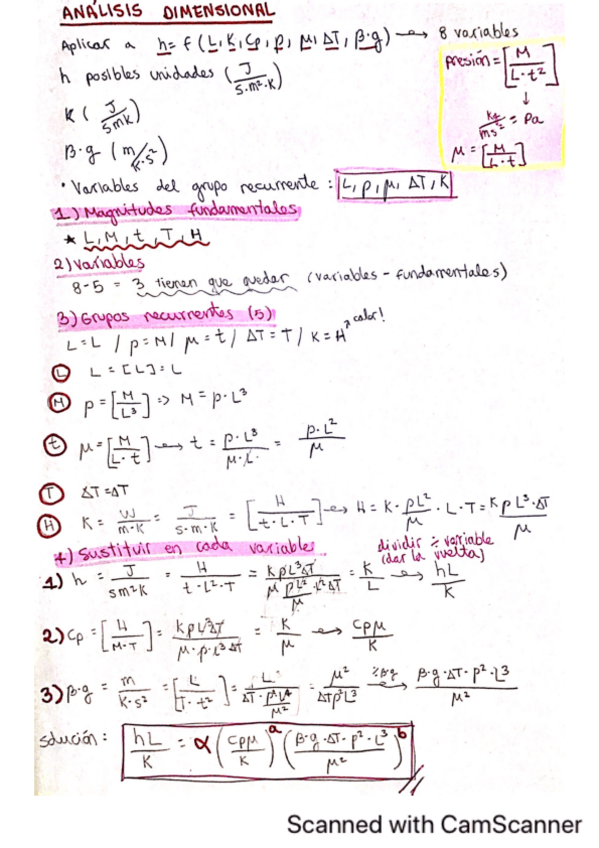 ANÁLISIS DIMENSIONAL
Aplicar a h = f (L, K, Cp, ρ, μ, ΔT, β·g) → 8 variables
h posibles unidades (J / s·m²·K)
presión = [M / L·t²]
↓
kg / ms² = Pa
μ = [M / L·t]
K ( J / smK )
β·g ( m / K·s² )
• Variables del grupo recurrente : L, ρ, μ, ΔT, K
1.) Magnitudes fundamentales
★ L, M, t, T, H
2) Variables
8-5 = 3 tienen que quedar (variables - fundamentales)
3) Grupos recurrentes (5)
L = L / ρ = M / μ = t / ΔT = T / K = H → calor!
Ⓛ L = [L] = L
Ⓜ ρ = [M / L³] => M = ρ·L³
ⓣ μ = [M / L·t] → t = ρ·L³ / μ·L = ρ·L² / μ
Ⓣ ΔT = ΔT
Ⓗ K = W / m·K = J / s·m·K = [H / t·L·T] → H = K· ρL² / μ · L·T = K ρ L³·ΔT / μ
4) Sustituir en cada variable
dividir ÷ variable
(dar la vuelta)
1) h = J / sm²K = H / t·L²·T = KρL³ΔT / μ ρL²/μ ·L²ΔT = K / L → hL / K
2) Cp = [H / M·T] = KρL³ΔT / μ·ρ·L³ΔT = K / μ → Cpμ / K
3) β·g = m / K·s² = [L / T·t²] = L / ΔT· ρ²L⁴/μ² = μ² / ΔTρ²L³ → ÷βg β·g·ΔT·ρ²·L³ / μ²
solución : hL / K = α ( Cpμ / K )ᵃ ( β·g·ΔT·ρ²·L³ / μ² )ᵇ
Scanned with CamScanner